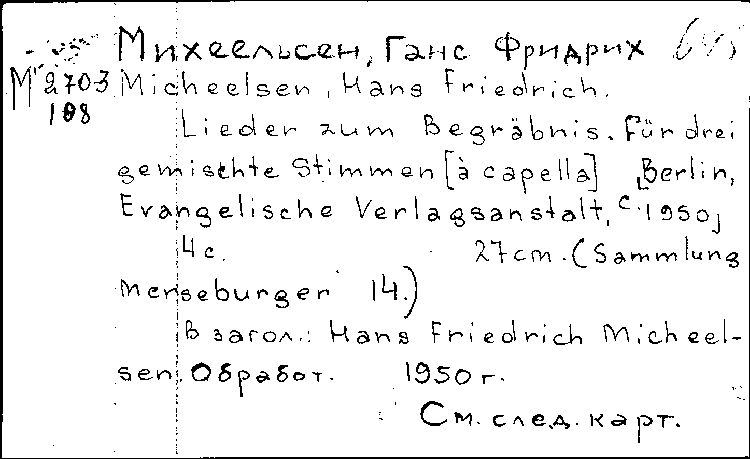 Михеельсен, Ганс Фридрих
М 2703 Micheelsen, Hans Friedrich.
108
Lieder zum Begräbnis. Für drei
gemischte Stimmen [à capella] [Berlin,
Evangelische Verlagsanstalt, c. 1950]
4 с. 27 cm. (Sammlung
Merseburger 14.)
В загол.: Hans Friedrich Micheel-
sen. Обработ. 1950 г.
См. след. карт.